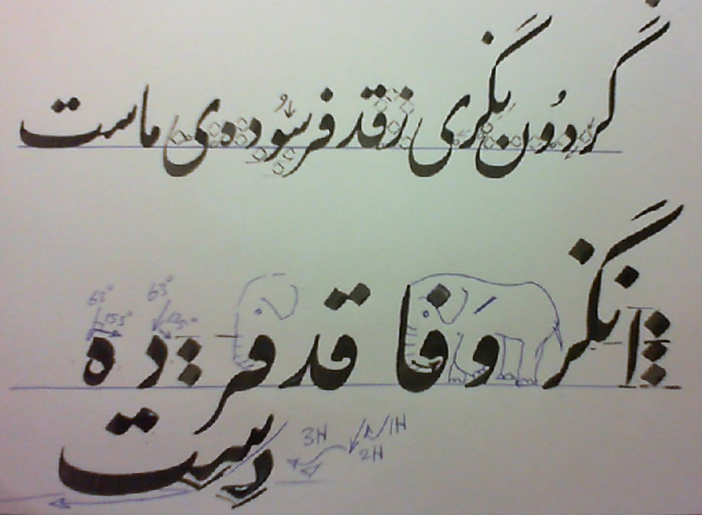 گردُون نگری ز قد فرسُوده‌ی ماست
ا نگر و فا قد فر د ه
63° 63°
155°
دست
3H 1H
2H